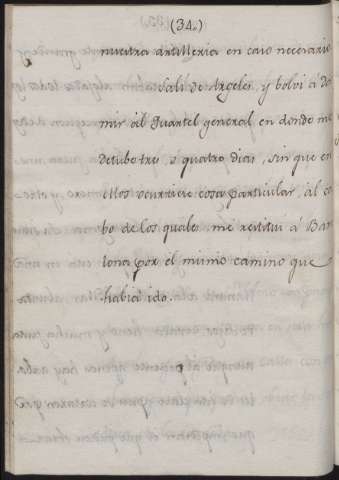 (34.)
nuestra artilleria en caso necesario
Salí de Argeles, y bolvi á do
mir al Quartel general en donde me
detube tres, ó quatro dias, sin que en
ellos ocurriese cosa particular, al ca
bo de los quales me restitui á Bar
lona por el mismo camino que
habia ido.